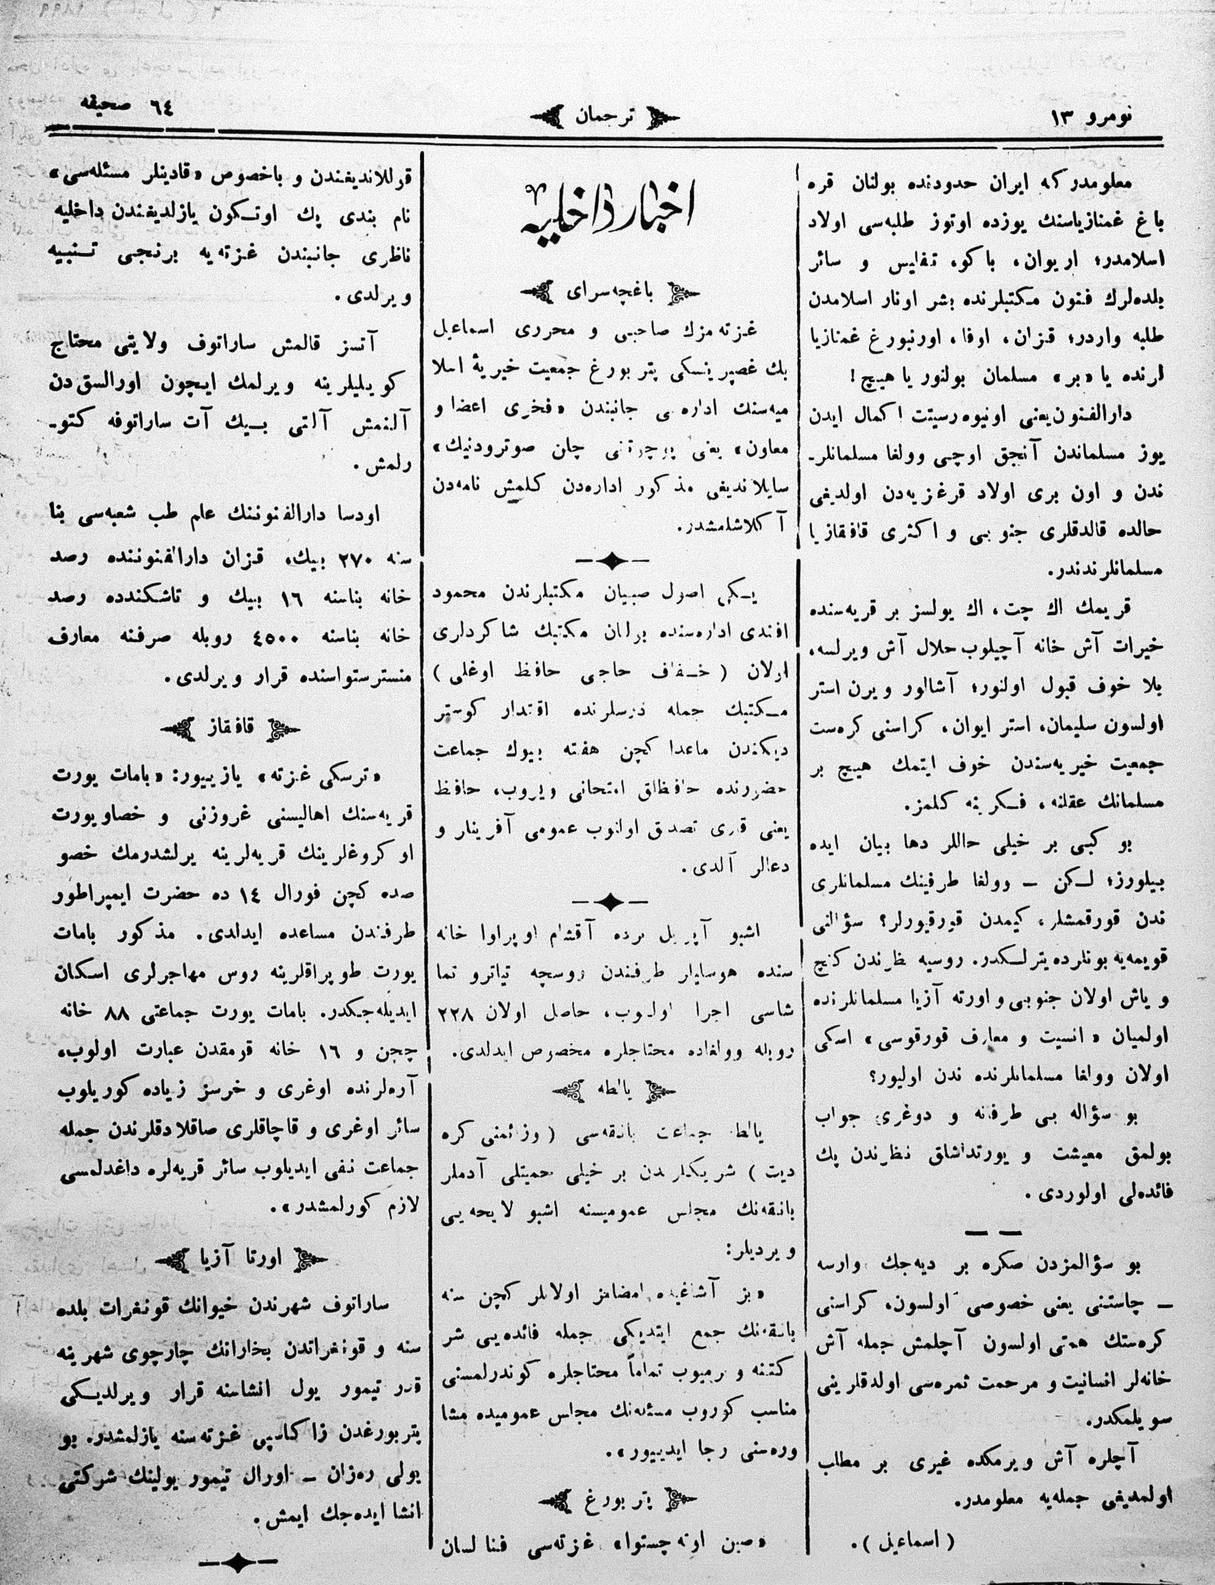 نومرو ١٣
ترجمان
٦٤ صحیفه
معلومدركه ایران حدودنده بولنان قره
باغ غمنازیاسنك یوزده اوتوز طلبه‌سی اولاد
اسلامدر؛ اریوان، باكو، تفلیس و سائر
بلده‌لرك فنون مكتبلرنده بشر اونار اسلامدن
طلبه واردر؛ قزان، اوفا، اورنبورغ غمنازیا
لرنده یا «بر» مسلمان بولنور یا هیچ!
دارالفنون یعنی اونیوه‌رسیتت اكمال ایدن
یوز مسلماندن آنجق اوچی وولغا مسلمانلر-
ندن و اون بری اولاد قرغزیه‌دن اولدیغی
حالده قالدقلری جنوبی و اكثری قافقازیا
مسلمانلرندندر.
قریمك اك چت، اك یولسز بر قریه‌سنده
خیرات آش خانه آچیلوب حلال آش ویرلسه،
بلا خوف قبول اولنور؛ آشالور ویرن استر
اولسون سلیمان، استر ایوان، كراسنی كره‌ست
جمعیت خیریه‌سندن خوف ایتمك هیچ بر
مسلمانك عقلنه، فكرینه كلمز.
بو كبی بر خیلی حاللر دها بیان ایده
بیلورز؛ لكن — وولغا طرفینك مسلمانلری
ندن قورقمشلر، كیمدن قورقیورلر؟ سؤالنی
قویمه‌یه بونلرده یترلكدر. روسیه نظرندن كنج
و یاش اولان جنوبی و اورته آزیا مسلمانلرنده
اولمیان «انسیت و معارف قورقوسی» اسكی
اولان وولغا مسلمانلرنده ندن اولیور؟
بو سؤاله بی طرفانه و دوغری جواب
بولمق معیشت و یورتداشلق نظرندن پك
فائده‌لی اولوردی.
بو سؤالمزدن صكره بر دیه‌جك وارسه
— چاستنی یعنی خصوصی اولسون، كراسنی
كره‌ستك همتی اولسون آچلمش جمله آش
خانه‌لر انسانیت و مرحمت ثمره‌سی اولدقلرینی
سویلمكدر.
آچلره آش ویرمكده غیری بر مطلب
اولمدیغی جمله‌یه معلومدر.
(اسماعیل).
اخبار داخلیه
باغچه‌سرای
غزته‌مزك صاحبی و محرری اسماعیل
بك غصپرینسكی پتربورغ جمعیت خیریهٔ اسلا
میه‌سنك اداره‌سی جانبندن «فخری اعضا و
معاون» یعنی پوچوتنی چلن صوترودنیك»
سایلاندیغی مذكور اداره‌دن كلمش نامه‌دن
آكلاشلمشدر.
یكی اصول صبیان مكتبلرندن محمود
افندی اداره‌سنده بولنان مكتبك شاكرداری
اولان (خفاف حاجی حافظ اوغلی)
مكتبك جمله درسلرنده اقتدار كوستر
دیكندن ماعدا كچن هفته بیوك جماعت
حضورنده حافظلق امتحانی ویروب، حافظ
یعنی قاری تصدق اولنوب عمومی آفرینلر و
دعالر آلدی.
اشبو آپریل برده آقشام اوپراوا خانه
سنده هوسلیلر طرفندن روسچه تیاترو تما
شاسی اجرا اولنوب، حاصل اولان ٢٢٨
روبله وولغاده محتاجلره مخصوص ایدلدی.
یالطه
یالطه جماعت بانقه‌سی (وزائمنی كره
دیت) شریكلرندن بر خیلی حمیتلی آدملر
بانقه‌نك مجلس عمومیسنه اشبو لایحه‌یی
ویردیلر:
«بز آشاغیده امضامز اولانلر كچن سنه
بانقه‌نك جمع ایتدیكی جمله فائده‌یی شر
كتنه ویرمیوب تماماً محتاجلره كوندرلمسنی
مناسب كوروب مسئله‌نك مجلس عمومیده مشا
وره‌سنی رجا ایدییور».
پتربورغ
«صین اوته‌چستوا» غزته‌سی فنا لسان
قوللاندیغندن و باخصوص «قادینلر مسئله‌سی»
نام بندی پك اوتكون یازلدیغندن داخلیه
ناظری جانبندن غزته‌یه برنجی تنبیه
ویرلدی.
آتسز قالمش ساراتوف ولایتی محتاج
كویلیلرینه ویرلمك ایچون اورالسق دن
آلنمش آلتی بیك آت ساراتوفه كتو-
رلمش.
اودسا دارالفنوننك علم طب شعبه‌سی بنا
سنه ٢٧٠ بیك، قزان دارالفنوننده رصد
خانه بناسنه ١٦ بیك و تاشكندده رصد
خانه بناسنه ٤٥٠٠ روبله صرفنه معارف
منسترستواسنده قرار ویرلدی.
قافقاز
«ترسكی غزته» یازییور: «بامات یورت
قریه‌سنك اهالیسنی غروزنی و خصاویورت
اوكروغلرینك قریه‌لرینه یرلشدرمك خصو
صده كچن فورال ١٤ ده حضرت ایمپراطور
طرفندن مساعده ایدلدی. مذكور بامات
یورت طوپراقلرینه روس مهاجرلری اسكان
ایدیله‌جكدر. بامات یورت جماعتی ٨٨ خانه
چچن و ١٦ خانه قومقدن عبارت اولوب،
آره‌لرنده اوغری و خرسز زیاده كوریلوب
سائر اوغری و قاچاقلری صاقلادقلرندن جمله
جماعت نفی ایدیلوب سائر قریه‌لره داغدلمسی
لازم كورلمشدر».
اورتا آزیا
ساراتوف شهرندن خیوانك قونغرات بلده
سنه و قونغراتدن بخارانك چارچوی شهرینه
قدر تیمور یول انشاسنه قرار ویرلدیكی
پتربورغدن زاكاسپی غزته‌سنه یازلمشدر. بو
یولی ره‌زان — اورال تیمور یولینك شركتی
انشا ایده‌جك ایمش.